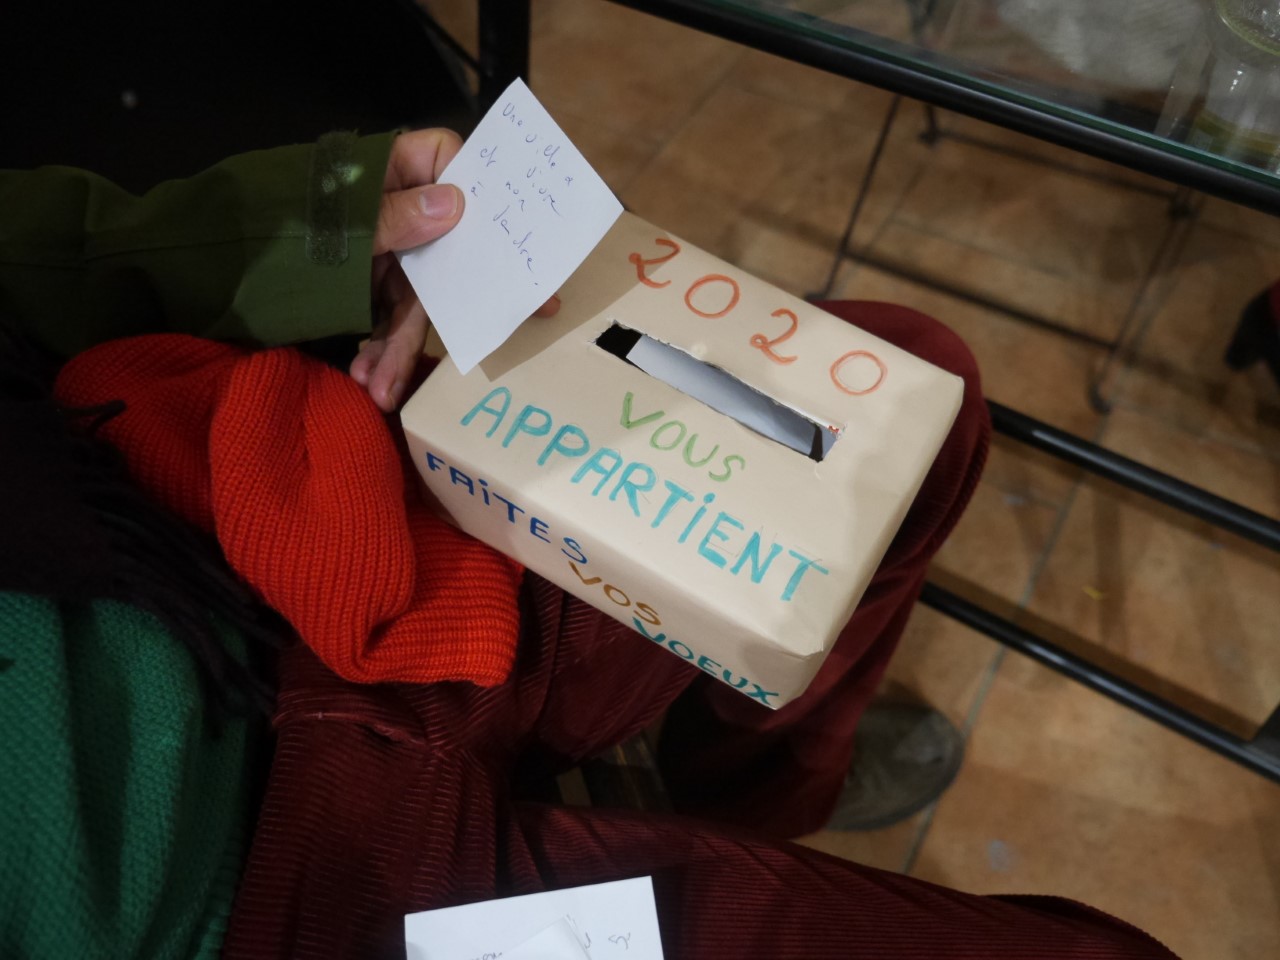 Une ville a
et vivre
non
à vendre.
2020
VOUS
APPARTiENT
FAiTES
VOS
VOEUX